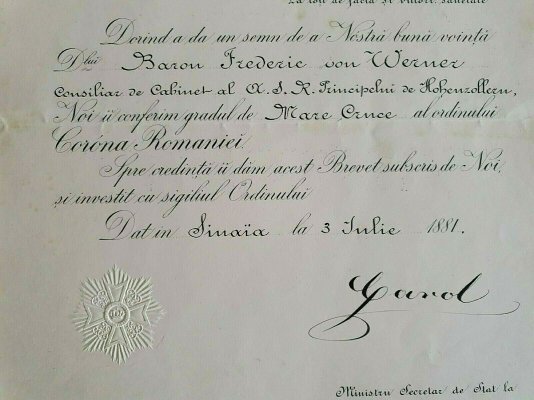 La toti de facia si viitori, sanetate
Dorind a da un semn de a Nostră bună voință
Dlui Baron Frederic von Werner
Consiliar de Cabinet al A. S. R. Principelui de Hohenzollern,
Noi îi conferim gradul de Mare Cruce al ordinului
Coróna Romaniei.
Spre credință îi dăm acest Brevet subscris de Noi,
și investit cu sigiliul Ordinului
Dat in Sinaïa la 3 Iulie 1881.
Carol
Ministru Secretar de Stat la